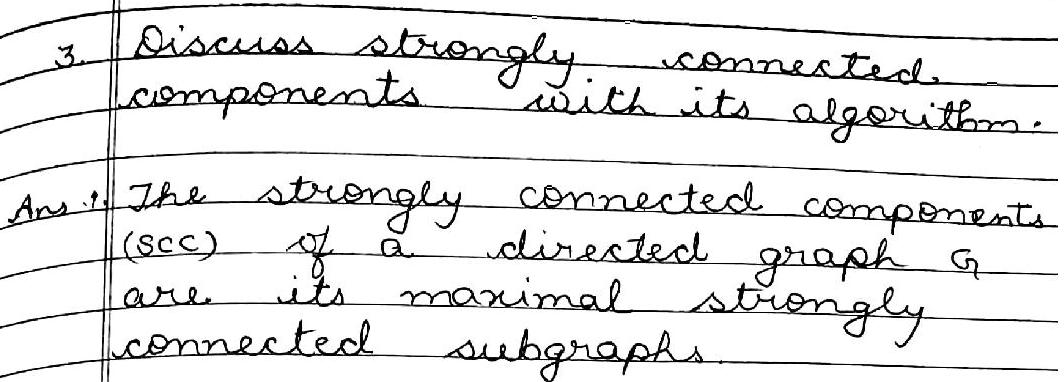 3. Discuss strongly connected
components with its algorithm.
Ans :. The strongly connected components
(SCC) of a directed graph G
are its maximal strongly
connected subgraphs.